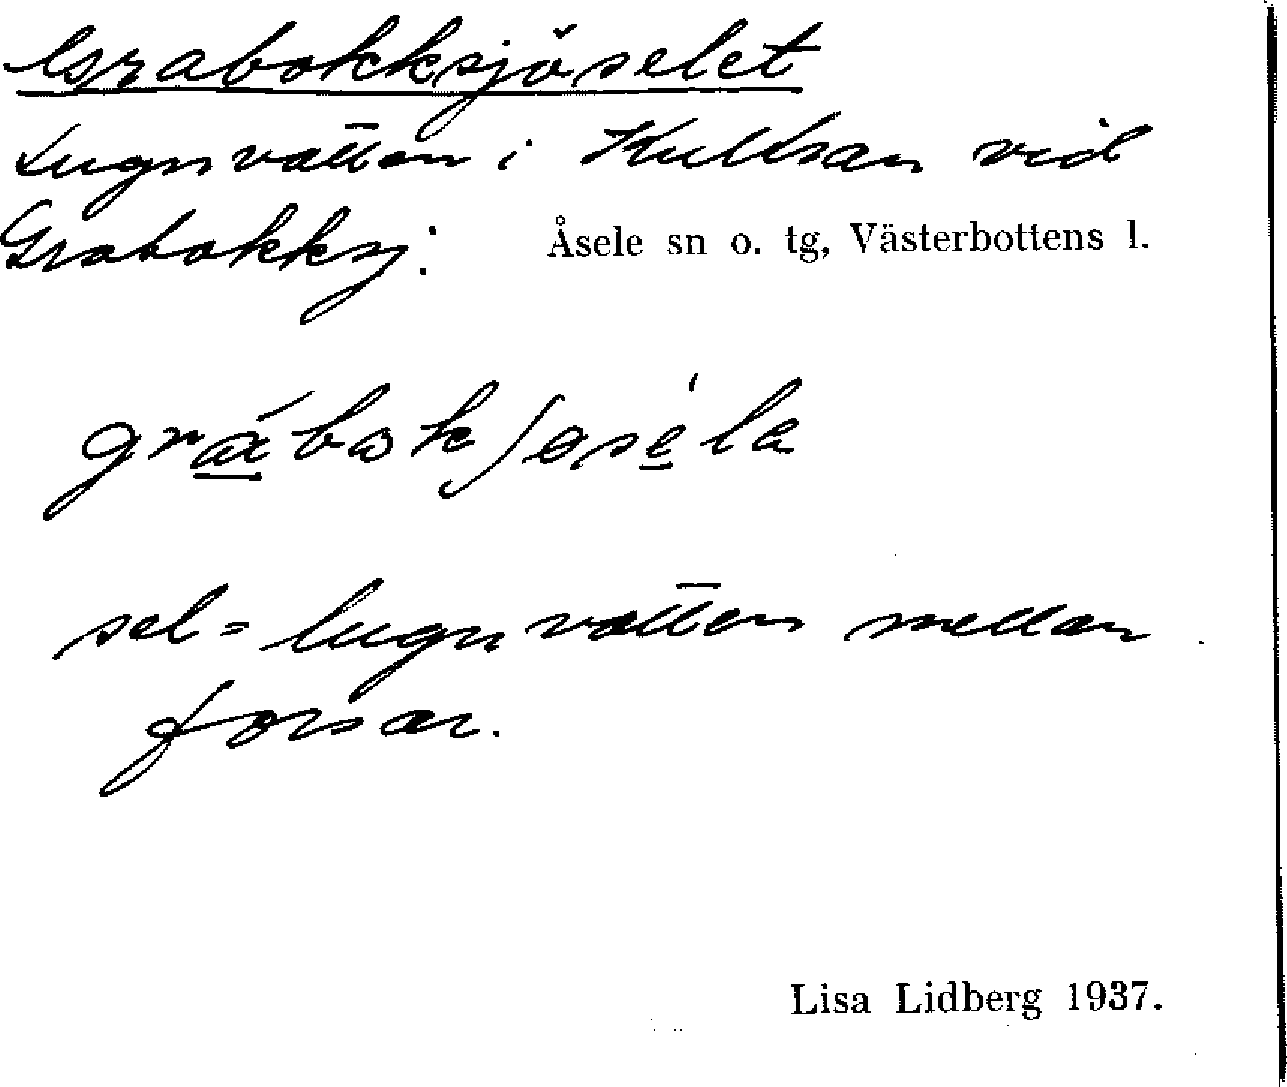 Grabokksjöselet
Lugnvatten i Kultsan vid
Grabokksj: Åsele sn o. tg, Västerbottens l.
sel = lugnvatten mellan
forsar.
Lisa Lidberg 1937.